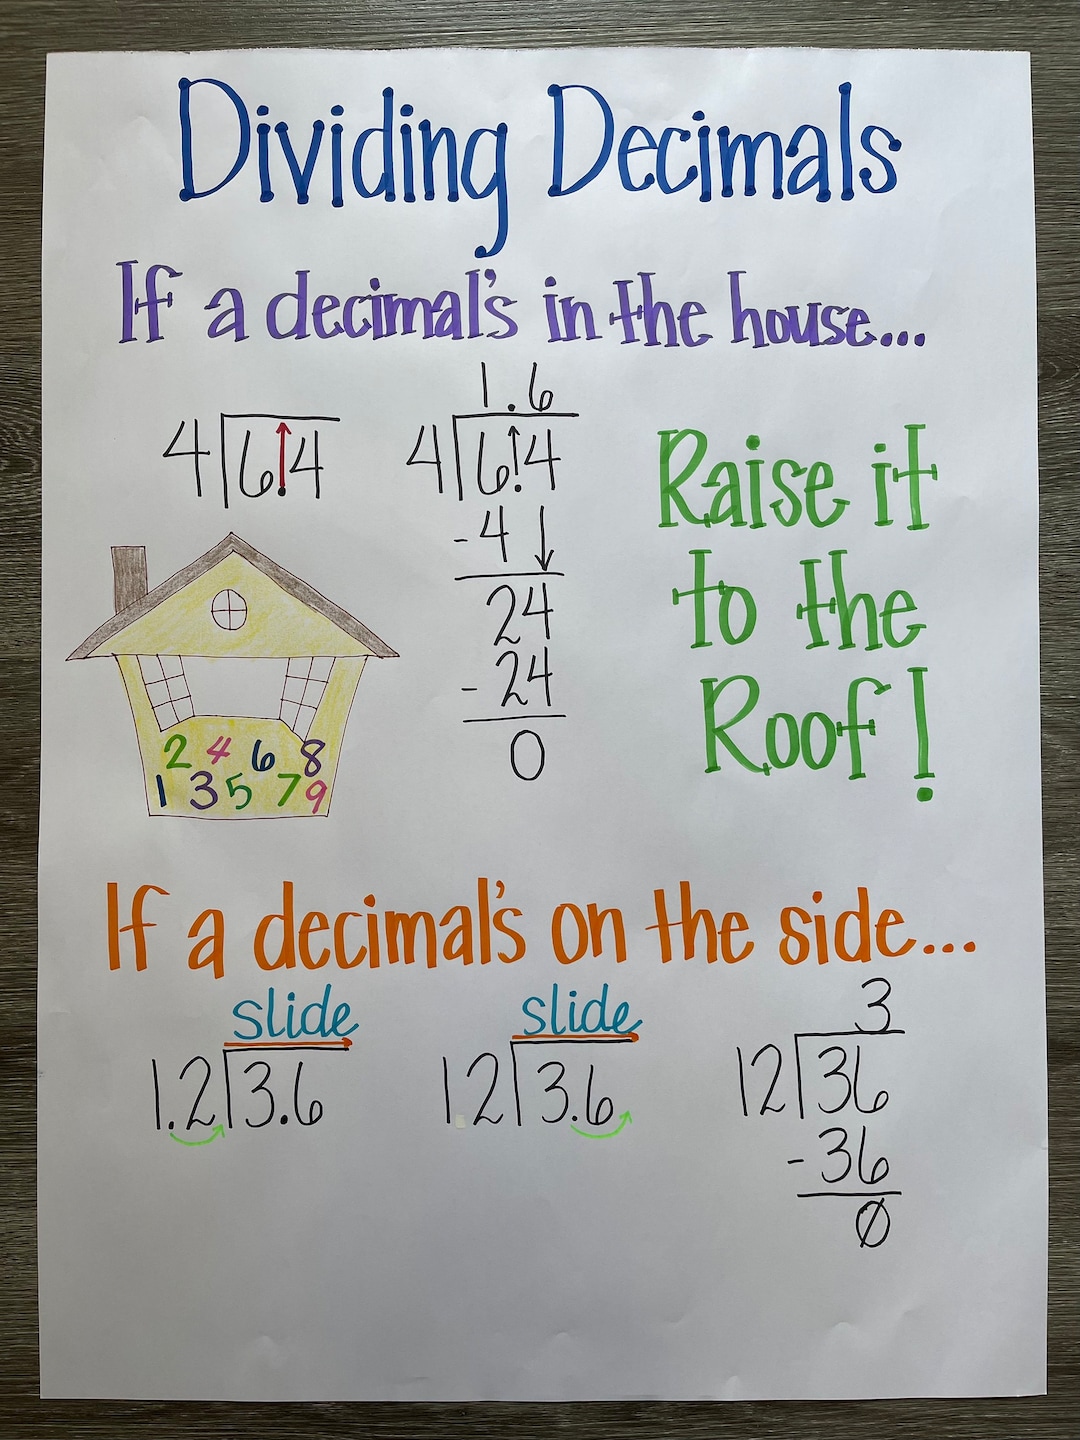 Dividing Decimals
If a decimal's in the house...
1.6
4 6.4 4 6.4
-4
24
-24
0
Raise it
to the
Roof!
2 4 6 8
1 3 5 7 9
If a decimal's on the side...
slide slide 3
1.2 3.6 1.2 3.6 12 36
-36
0